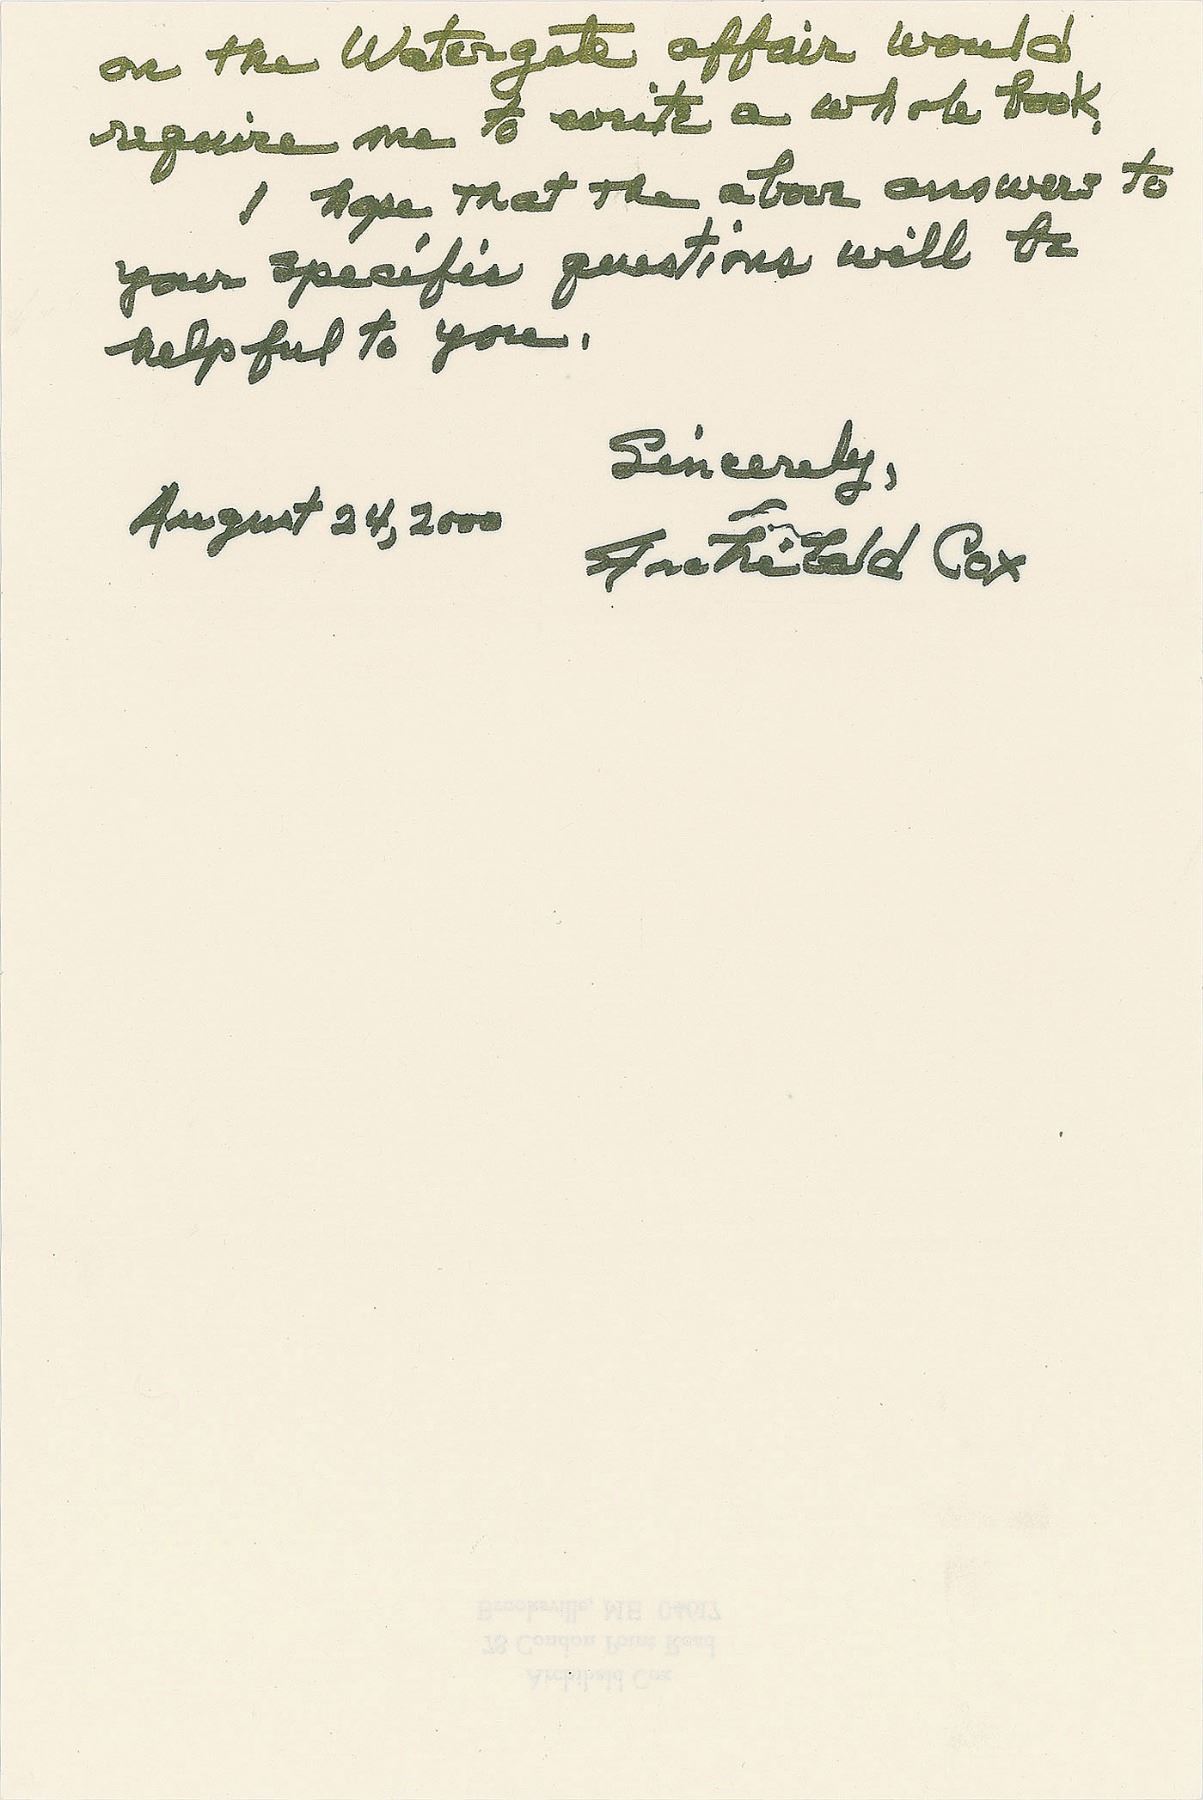 on the Watergate affair would
require me to write a whole book.
I hope that the above answers to
your specific questions will be
helpful to you.
Sincerely,
August 24, 2000
Archibald Cox
Brooksville, ME 04617
78 Condon Point Road
Archibald Cox